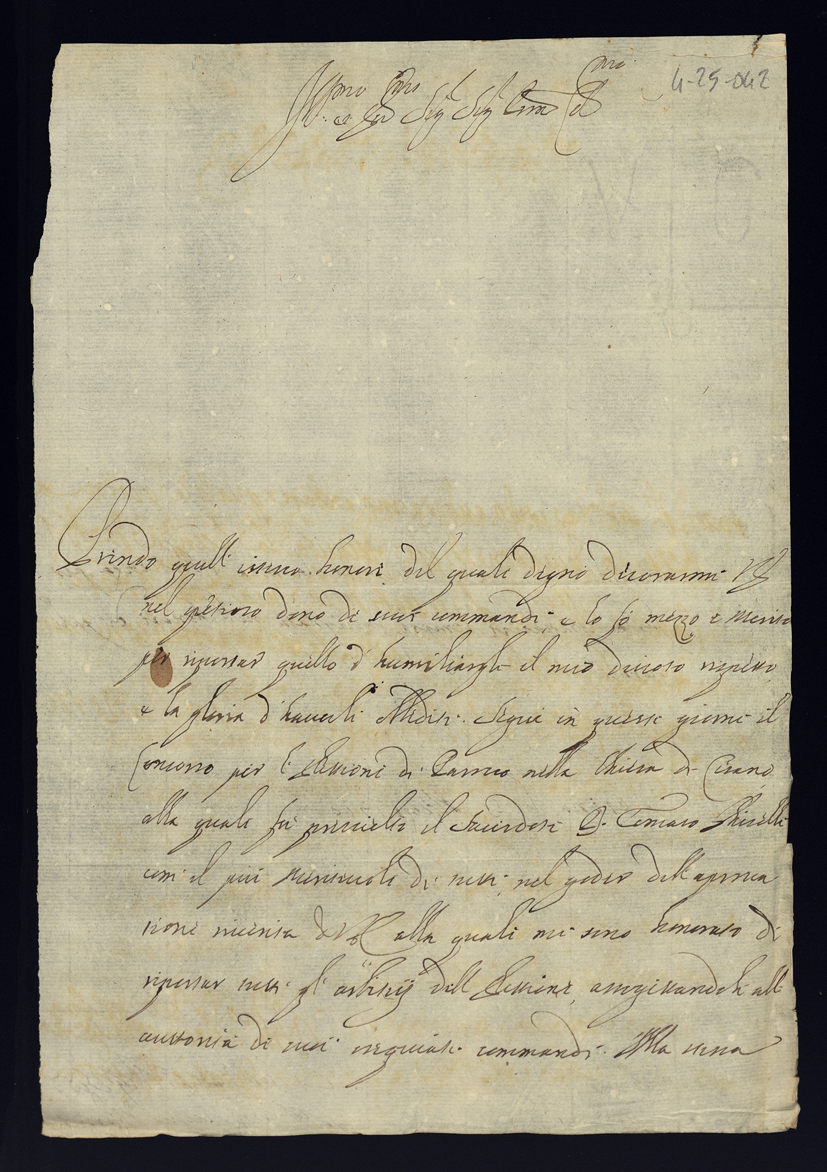 4-25-042
Ill.mo et Sig.r Sig.r
Prendo quell' istesso honore, del quale degnò decorarmi VS
nel pretioso dono de suoi commandi e lo fò mezzo e merito
per riportar quello d'humiliargli il mio divoto rispetto
e la gloria d'haverli Vbbiditi. Seguì in questi giorni il
Concorso per l'Elettione di Parroco nella Chiesa di Cisano,
alla quale fù prescielto il Sacerdote D. Tomaso
com' il più meritevole di tutti, nel goder dell'approua
tione riverita di VS alla quale mi sono honorato di
riportar tutti gl'arbitrij dell'Elettione, assogettandoli all'
auttorità di suoi riveriti commandi. Alla